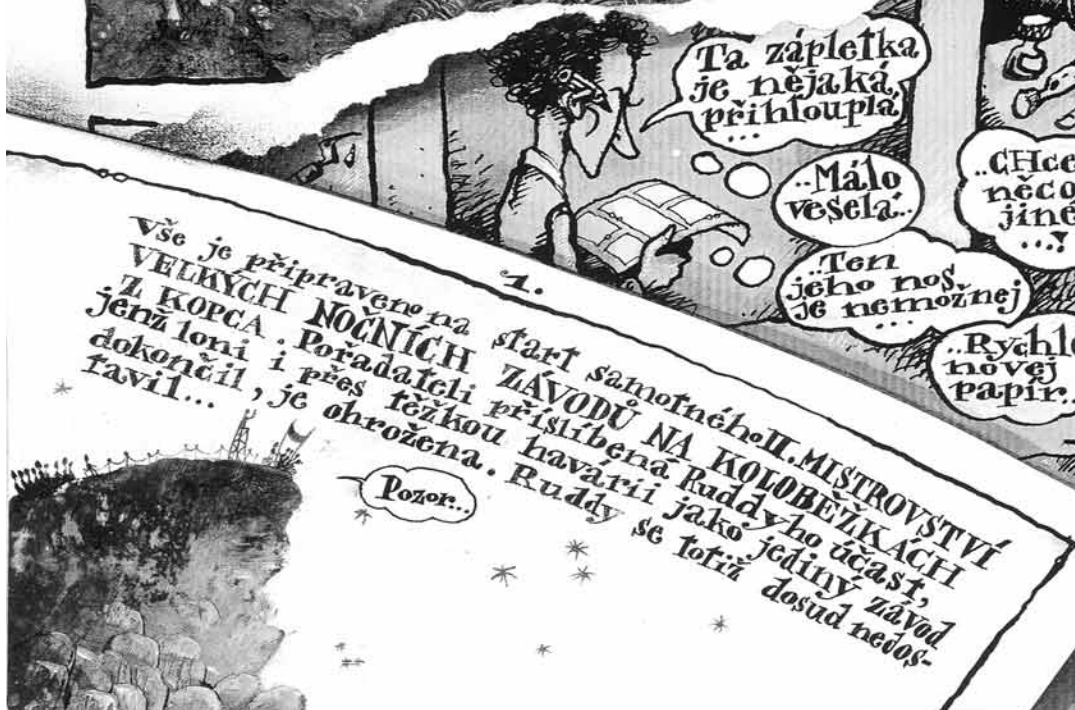 Ta zápletka
je nějaká
přihlouplá
...
..Málo
veselá..
..CHce
něco
jiné
...!
..Ten
jeho nos
je nemožnej
...
..Rychle
novej
papír..
1.
Vše je připraveno na start samotného II. MISTROVSTVÍ
VELKÝCH NOČNÍCH ZÁVODŮ NA KOLOBĚŽKÁCH
Z KOPCA. Pořadateli přislíbená Ruddyho účast,
jenž loni i přes těžkou havárii jako jediný závod
dokončil, je ohrožena. Ruddy se totiž dosud nedos-
tavil...
Pozor...